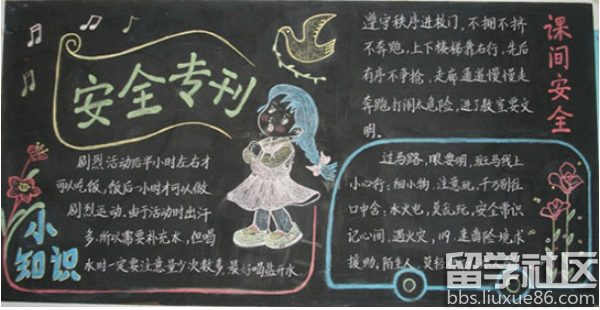 安全专刊
剧烈活动后半小时左右才
可以吃饭，饭后一小时才可以做
剧烈运动。由于活动时出汗
多，所以需要补充水，但喝
水时一定要注意量少次数多，最好喝盐开水
小
知识
遵守秩序进校门，不拥不挤
不奔跑，上下楼梯靠右行，先后
有序不争抢，走廊通道慢慢走
奔跑打闹太危险，进了教室要文
明。
课间安全
过马路，眼要明，斑马线上
小心行；细小物，注意玩，千万别往
口中含；水火电，莫乱玩，安全常识
记心间，遇火灾，119，速离险境求
援助，陌生人，莫轻
留学社区
bbs.liuxue86.com